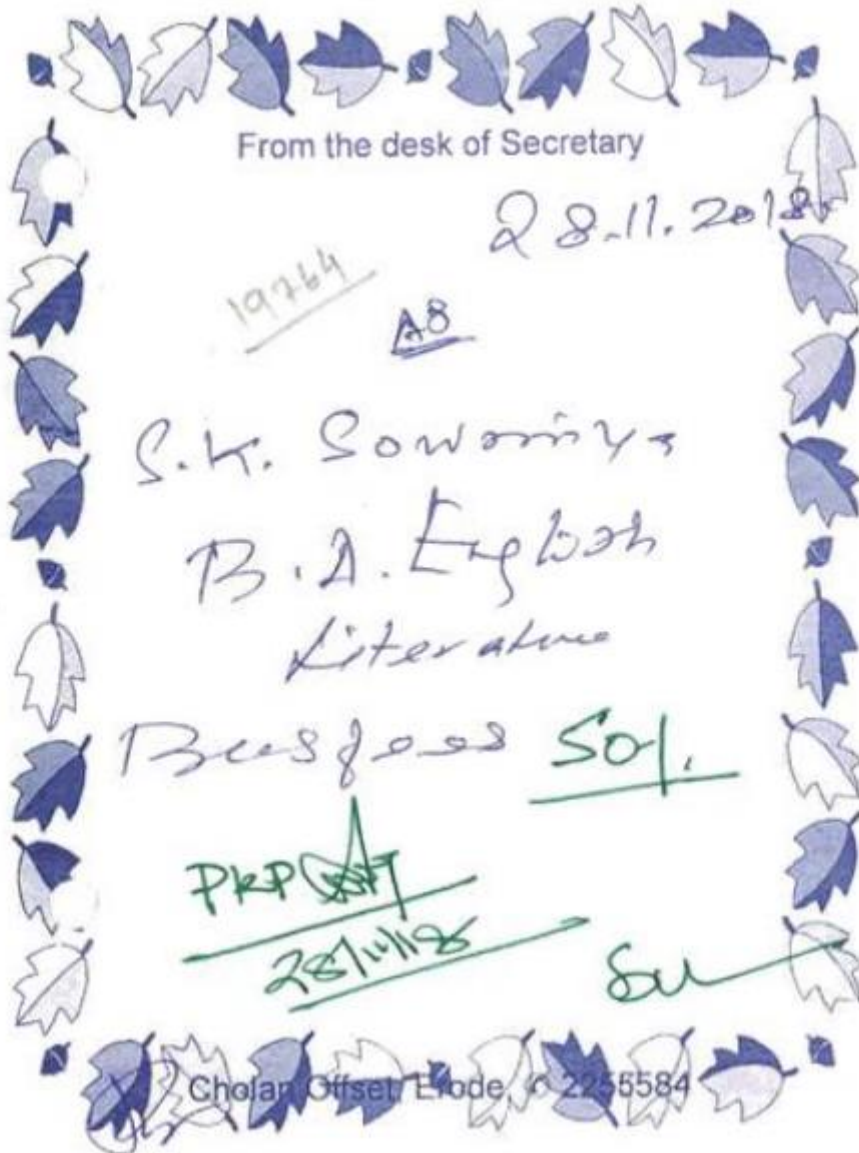 From the desk of Secretary
28.11.2018
19764
A8
S.K. Sowmiya
B.A. English
Literature
Bus fees 50%
PKP
28/11/18
Cholan Offset, Erode, ✆ 2255584